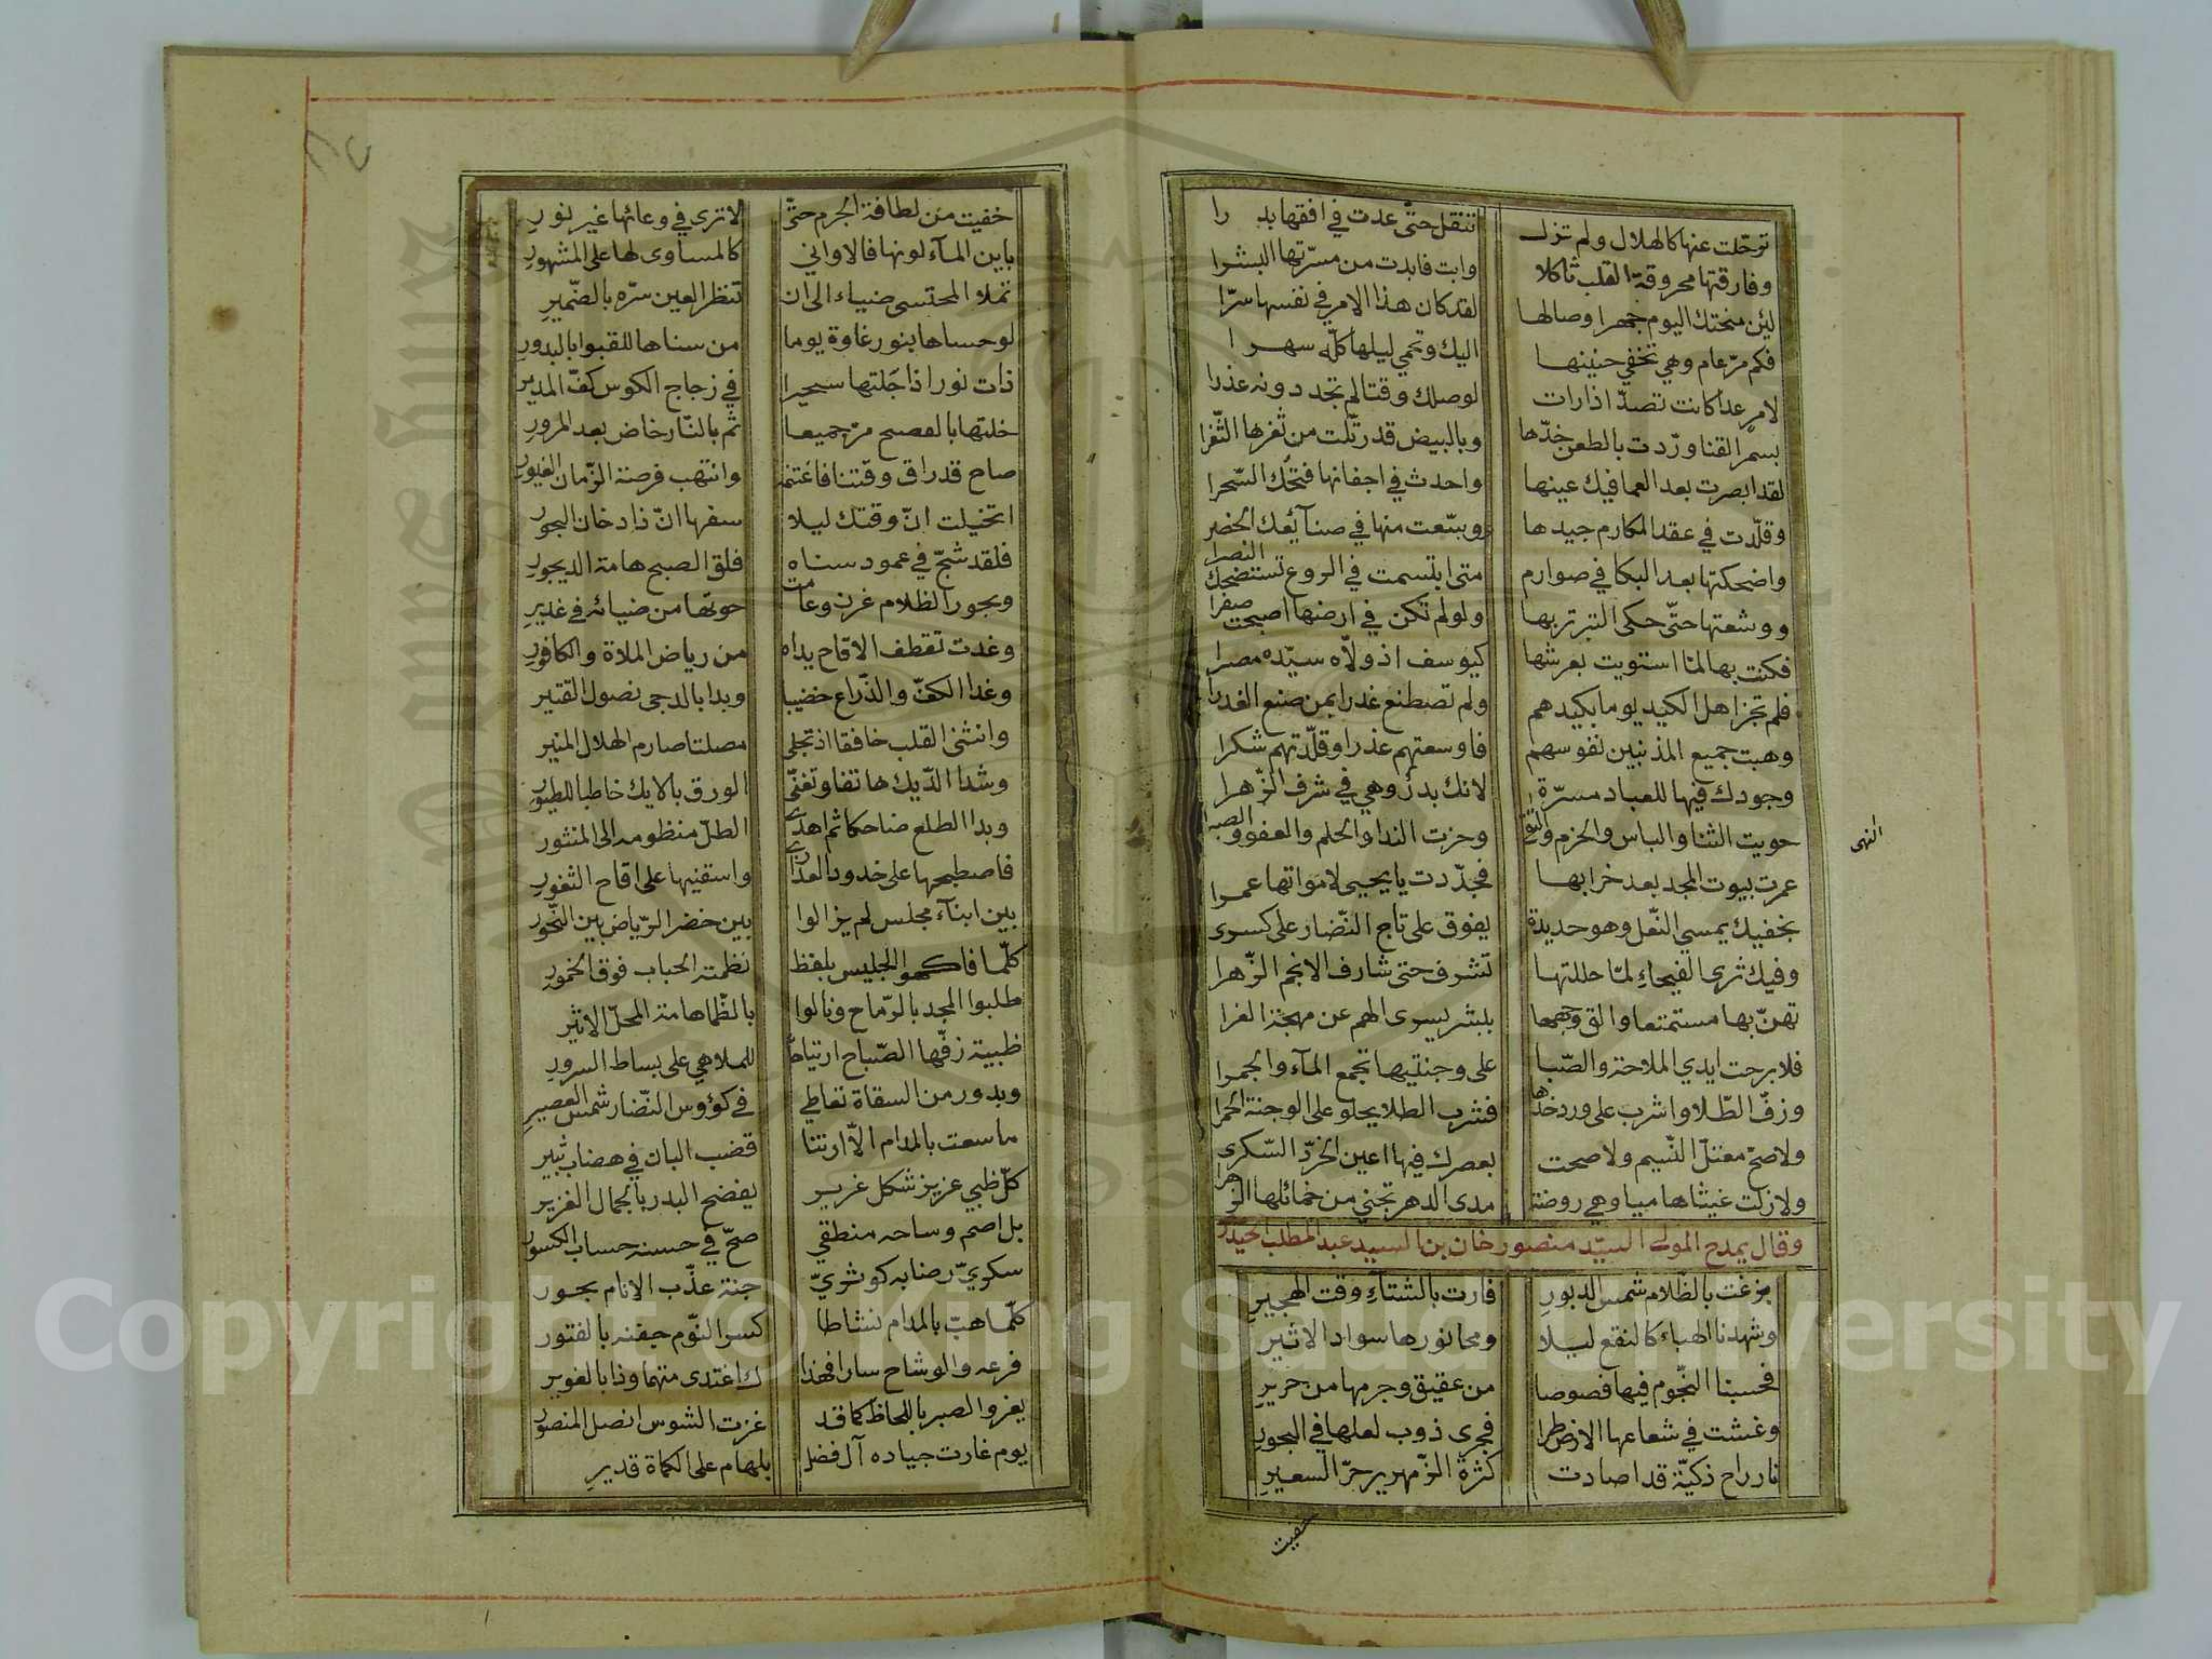 ترحّلت عنها كالهلال ولم تزل تنقل حتّى عدت في افقها بدرا
وفارقتها محروقة القلب ثاكلا وابت فابدت من مسرّتها البشرا
لئن منحتك اليوم جهرا وصالها لقد كان هذا الامر في نفسها سرّا
فكم مرّ عام وهي تخفي حنينها اليك وتحمي ليلها كلّه سهرا
لامرٍ عداكانت تصدّ اذا رات لوصلك وقتا لم تجد دونه عذرا
بسمر القنا ورّدت بالطعن خدّها وبالبيض قد رتّلت من ثغرها الثّغرا
لقد ابصرت بعد العما فيك عينها واحدث في اجفانها فتحك السّحرا
وقلّدت في عقد المكارم جيدها ووشّعت منها في صنآئعك الخصر
واضحكتها بعد البكا في صوارم متى ابتسمت في الروع تستضحك النصرا
ووشعتها حتّى حكى التبر تربها ولولم تكن في ارضها اصبحت صفرا
فكنت بها لمّا استويت بعرشها كيوسف اذ ولّاه سيّده مصرا
فلم تجز اهل الكيد يوما بكيدهم ولم تصطنع غدرا بمن صنع الغدرا
وهبت جميع المذنبين نفوسهم فاوسعتهم عذرا وقلّدتهم شكرا
وجودك فيها للعباد مسرّة لانك بدر وهي في شرف الزّهرا
حويت الثنا والباس والحزم والتقى وحزت الندا والحلم والعفو والصبرا
النهى
عمرت بيوت المجد بعد خرابها فجدّدت يا يحيى لامواتها عمرا
بخفيك يمسي النّعل وهو حديدة يفوق على تاج النّضار على كسرى
وفيك ثرى الفيحاء لمّا حللتها تشرف حتى شارف الانجم الزّهرا
تهنّ بها مستمتعا والق وجهها ببشر يسرى الهم عن مهجة الغرا
فلا برحت ايدي الملاحة والصّبا على وجنتيها تجمع المآء والجمرا
وزفّ الطّلا واشرب على ورد خدها فشرب الطلا يحلو على الوجنة الحمرا
ولا صحّ معتلّ النّسيم ولا صحت بعصرك فيها اعين الخرّد السّكرى
ولا زلت غيثا هاميا وهي روضة مدى الدهر تجني من خمائلها الزهرا
وقال يمدح المولى السيّد منصور خان بن السيد عبد المطلب الحيدر
بزغت بالظّلام شمس الدبور فارت بالشتاء وقت الهجير
وشهدنا الهباء كالنقع ليلا ومحا نورها سواد الاثير
فحسبنا النّجوم فيها فصوصا من عقيق وجرمها من حرير
وغشت في شعاعها الارض طرا فجرى ذوب لعلها في البحور
نار راح ذكيّة قد اصادت كثرة الزّمهرير حرّ السعير
خفيت
خفيت من لطافة الجرم حتّى لا ترى في وعائها غير نور
باين المآء لونها فالاواني كالمساوى لها على المشهور
تملا المحتسى ضياء الى ان تنظر العين سرّه بالضّمير
لو حساها بنو رغاوة يوما من سناها للقبوا بالبدور
ذات نور اذا جَلتها سحيرا في زجاج الكوس كفّ المدير
خلتها بالفصح مرّ جميعا ثم بالنّار خاض بعد المرور
صاح قد راق وقتنا فاغتنم وانتهب فرصة الزّمان الغيور
اتخيلت انّ وقتك ليلا سفها انّ ذا دخان البخور
فلقد شجّ في عمود سناه فلق الصبح هامة الديجور
وبحور الظلام غرن وعامت حوتها من ضيائه في غدير
وغدت تقطف الاقاح يداه من رياض الملاة والكافور
وغدا الكفّ والذّراع خضيبا وبدا بالدجى نصول القتير
وانثنى القلب خافقا اذ تجلى مصلتا صارم الهلال المنير
وشدا الدّيك هاتفا وتغنّى الورق بالايك خاطبا للطيور
وبدا الطلع ضاحكا ثم اهدى الطلّ منظومه الى المنثور
فاصطبحها على خدود العذارى واستقنيها على اقاح الثغور
بين ابنآء مجلس لم يزالوا بين خضر الرّياض بين النّحور
كلّما فاكهوا الجليس بلفظ نظمته الحباب فوق الخمور
طلبوا المجد بالرّماح ونالوا بالظّبا هامة المحلّ الاثير
ظبية زفّها الصّباح ارتياحا للملاهي على بساط السرور
وبدور من السقاة تعاطي في كؤوس النّضار شمس العصير
ما سعت بالمدام الّا ارتنا قضب البان في هضاب ثبير
كلّ ظبي عزيز شكل غرير يفضح البدر بالجمال الغزير
بل اصم وساحه منطقي صحّ في حسنه حساب الكسور
سكويّ رضابه كوثريّ جنة عذّب الانام بحور
كلّما هبّ بالمدام نشاطا كسر النّوم جفنه بالفتور
فرعه والوشاح سارا فهذا ك اغتدى متهما وذا بالغوير
يغزوا الصبر باللحاظ كما قد غزت الشوس انصل المنصور
يوم غارت جياده آل فضل بلهام على الكماة قدير